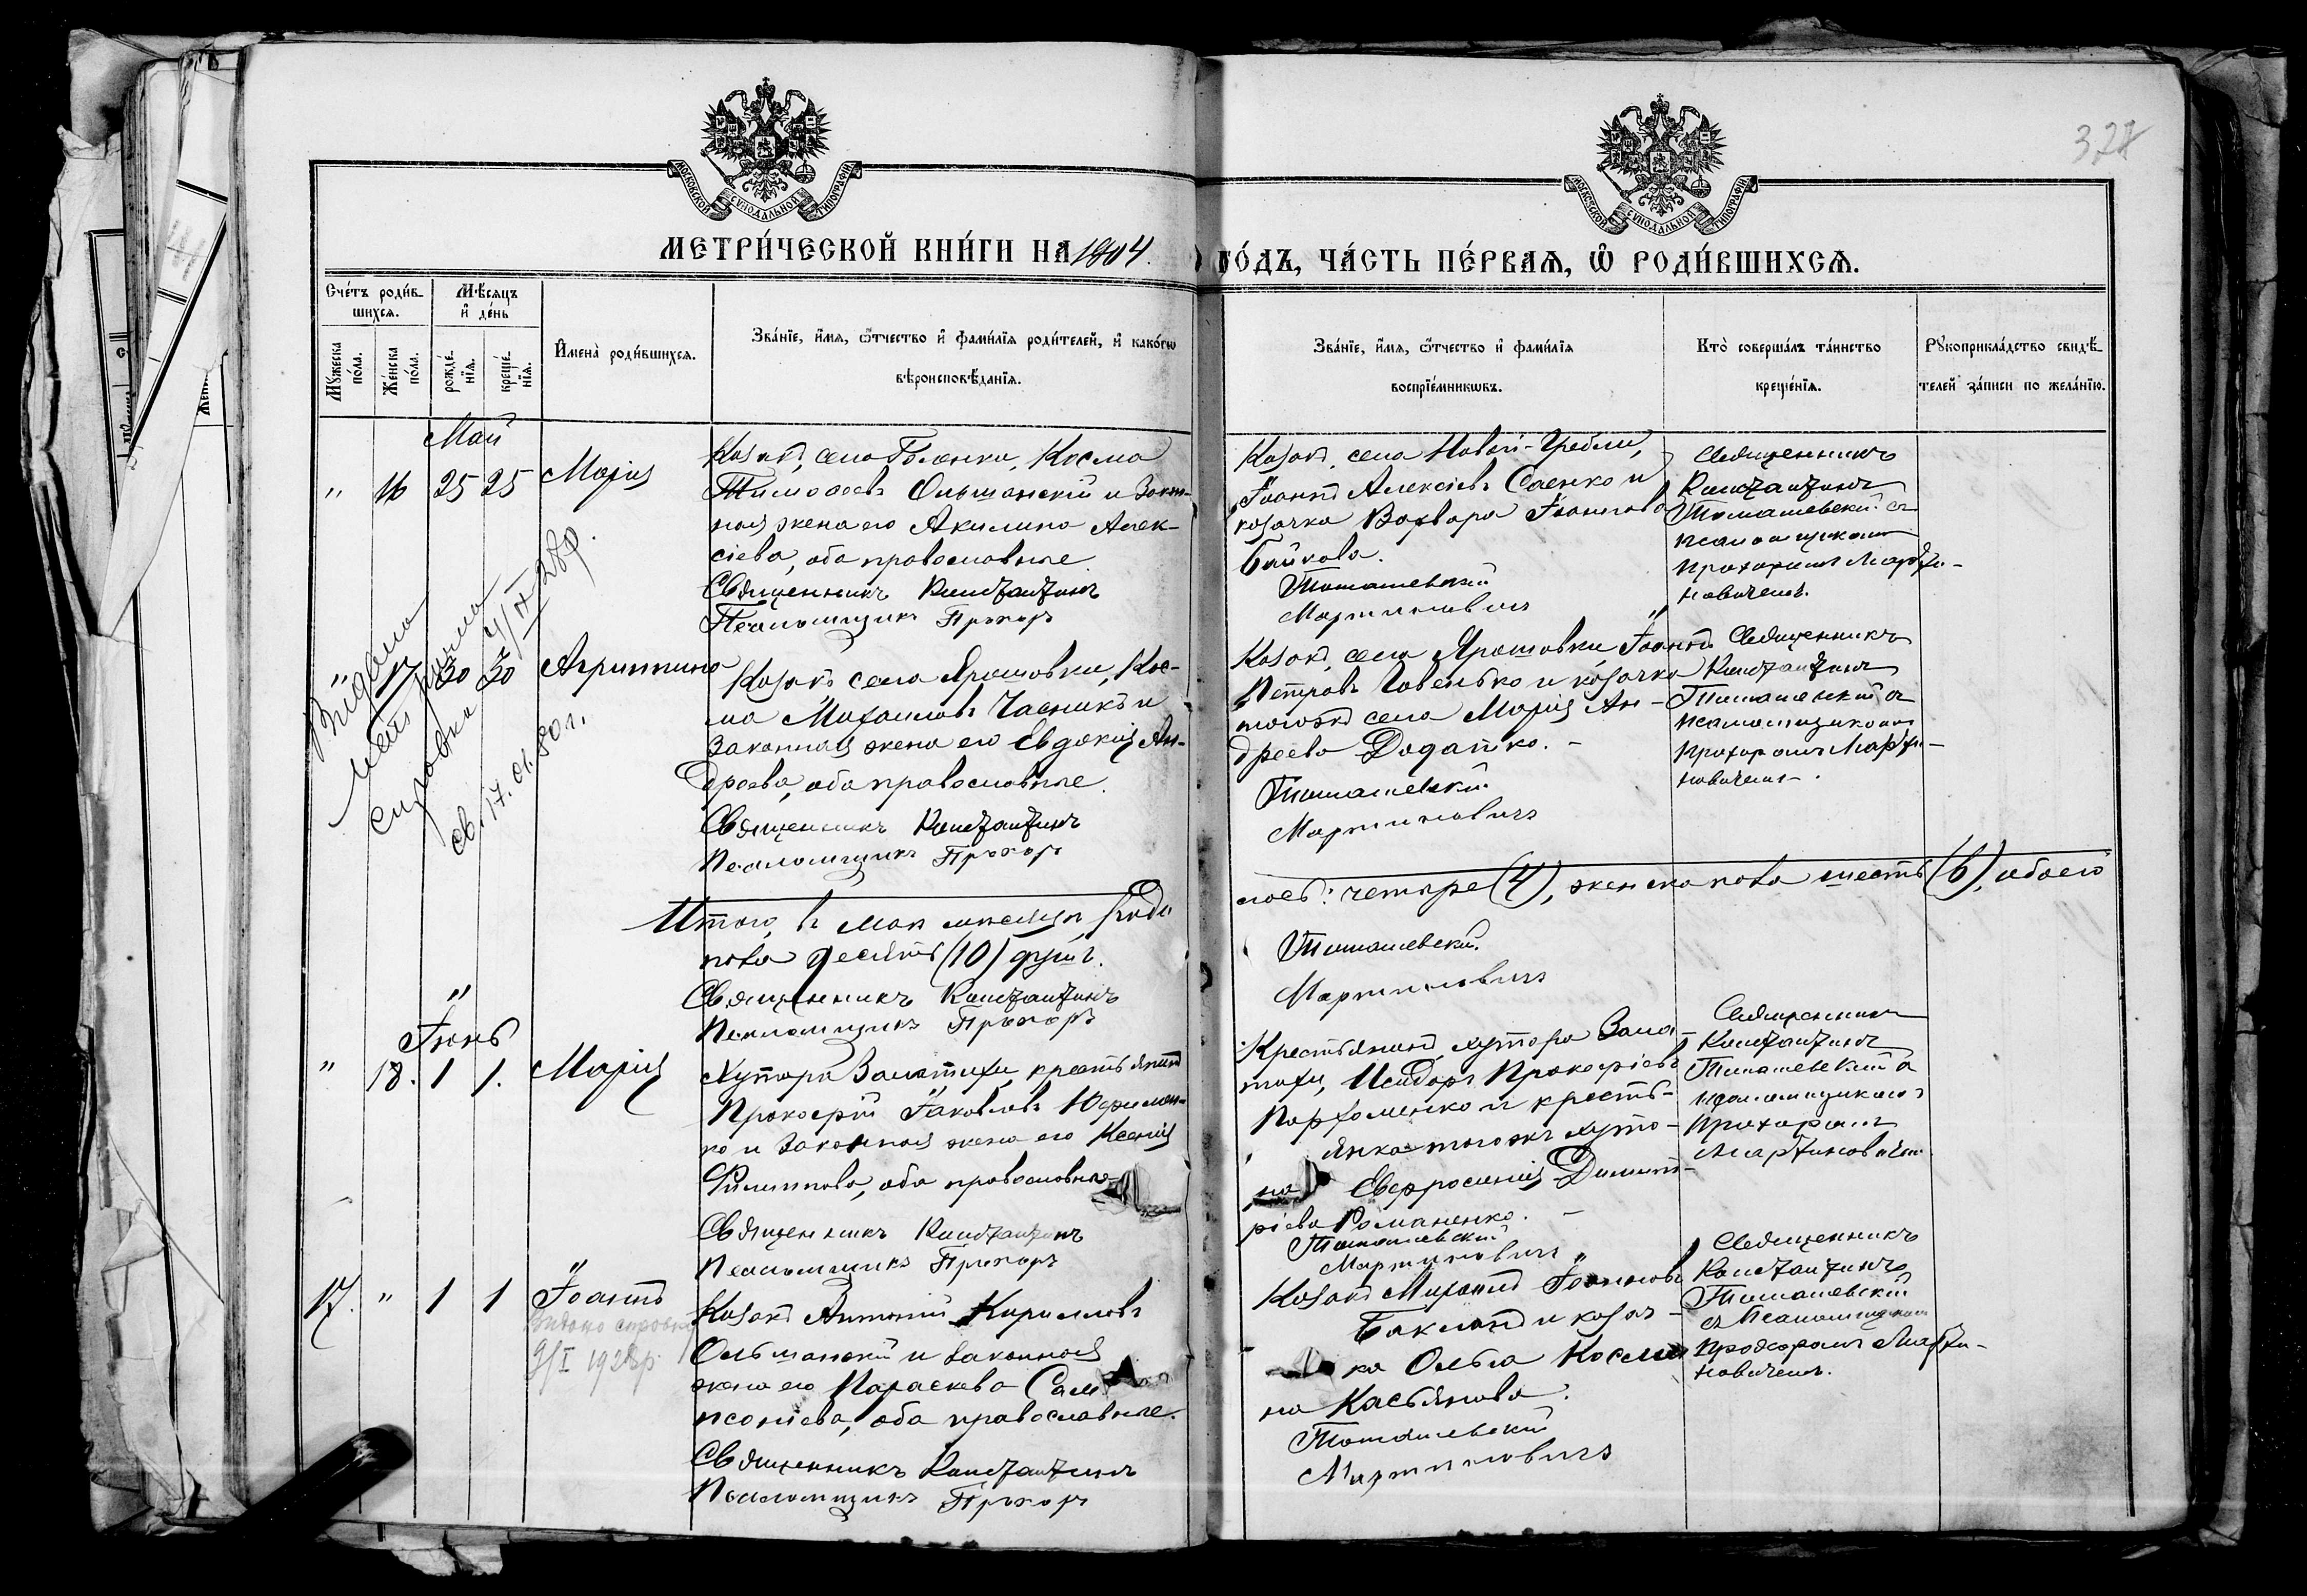 328
МОСКОВСКОЙ СУНОДАЛЬНОЙ ТИПОГРАФІИ
МОСКОВСКОЙ СУНОДАЛЬНОЙ ТИПОГРАФІИ
МЕТРИ́ЧЕСКОЙ КНИ́ГИ НА 1904 ГО́ДЪ, ЧА́СТЬ ПЕ́РВАЯ, Ѡ РОДИ́ВШИХСЯ.
Сче́тъ роди́в-
шихся.
Мѣ́сяцъ
и де́нь
Мꙋжеска по́ла.
Же́нска по́ла.
рожде́нїя.
креще́нїя.
Имена̀ роди́вшихся.
Зва́нїе, и́мя, ѻ́тчество и фами́лїя роди́телей, и како́гѡ
вѣроисповѣ́данїя.
Зва́нїе, и́мя, ѻ́тчество и фами́лїя
воспрїе́мникѡвъ.
Кто̀ соверша́лъ та́инство
креще́нїя.
Рꙋкоприкла́дство свидѣ́-
телей за́писи по жела́нїю.
Май
" 16 25 25 Марія
Козакъ, села Голенки, Косма
Тимофеевъ Ольшанскій и Закон-
ная жена его Акилина Алек-
сіева, оба православные.
Священникъ Константинъ
Псаломщикъ Прохоръ
Козакъ, села Новой-Гребли,
Іоаннъ Алексіевъ Саенко и
козачка Варвара Іоаннова
Байкова.
Томашевскій
Мартиновичъ
Священникъ
Константинъ
Томашевскій съ
псаломщикомъ
Прохоромъ Марти-
новичемъ.
" 17 30 30 Агриппина
Козакъ села Ярошовки, Кос-
ма Михаиловъ Часникъ и
Законная жена его Евдокія Ан-
дреева, оба православные.
Священникъ Константинъ
Псаломщикъ Прохоръ
Козакъ, села Ярошовки, Іоаннъ
Петровъ Говенько и козачка
тогожъ села Марія Ан-
дреева Додатко. -
Томашевскій
Мартиновичъ
Священникъ
Константинъ
Томашевскій съ
псаломщикомъ
Прохоромъ Марти-
новичемъ.
справка 4/IV 28р.
св. 17. 01. 80 г.
Итого, въ маѣ мѣсяцѣ роди-
лось: четыре (4), женска пола шесть (6), обоего
пола десять (10) душъ.
Священникъ Константинъ
Псаломщикъ Прохоръ
Томашевскій
Мартиновичъ
"
Іюнь
" 18. 1 1. Марія
Хутора Заматихи, крестьянинъ
Прокофій Іаковлевъ Юфимен-
ко и Законная жена его Ксенія
Филиппова, оба православные
Священникъ Константинъ
Псаломщикъ Прохоръ
Крестьянинъ, хутора Зама-
тихи, Исидоръ Прокофіевъ
Парфоменко и кресть-
янка тогожъ хуто-
ра Евфросинія Димит-
ріева Романенко. -
Томашевскій
Мартиновичъ
Священникъ
Константинъ
Томашевскій съ
псаломщикомъ
Прохоромъ
Мартиновичемъ.
17. " 1 1 Іоаннъ
Видано справку
9/I 1928р.
Козакъ Антоній Кирилловъ
Ольшанскій и законная
жена его Параскева Сам-
псоніева, оба православные.
Священникъ Константинъ
Псаломщикъ Прохоръ
Козакъ Михаилъ Іоанновъ
Бакланъ и козач-
ка Ольга Косми-
на Касьянова.
Томашевскій
Мартиновичъ
Священникъ
Константинъ
Томашевскій
съ Псаломщикомъ
Прохоромъ Марти-
новичемъ.